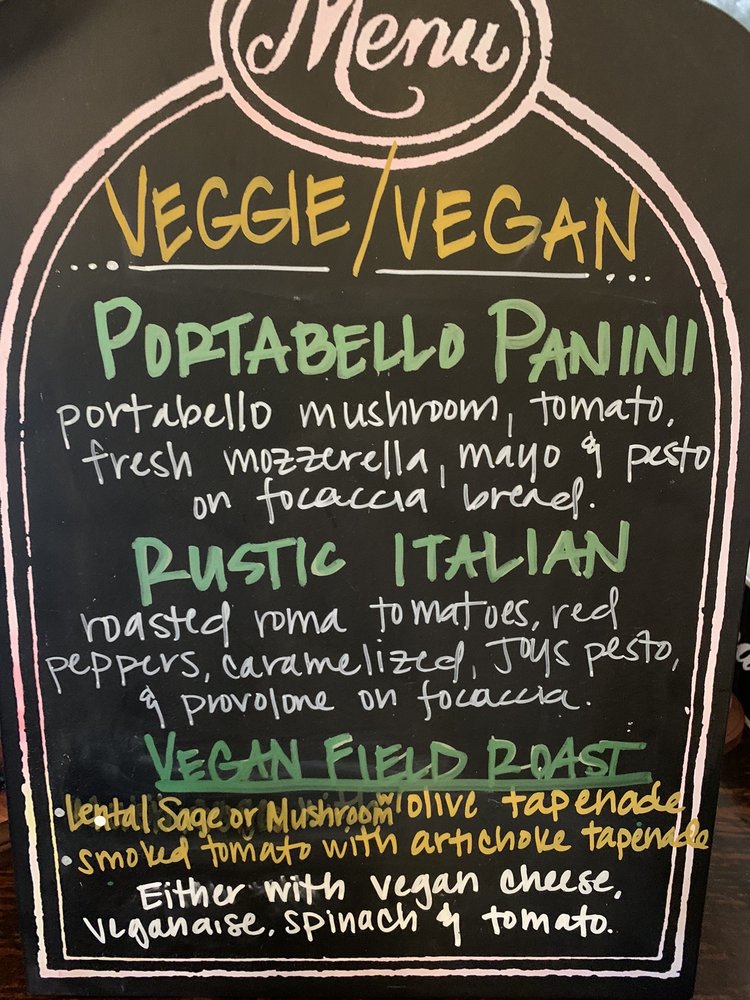 Menu
VEGGIE/VEGAN
PORTABELLO PANINI
portabello mushroom, tomato,
fresh mozzerella, mayo & pesto
on focaccia bread.
RUSTIC ITALIAN
roasted roma tomatoes, red
peppers, caramelized, Joys pesto,
& provolone on focaccia.
VEGAN FIELD ROAST
• Lental Sage or Mushroom w/ olive tapenade
• smoked tomato with artichoke tapenade
Either with vegan cheese,
veganaise, spinach & tomato.